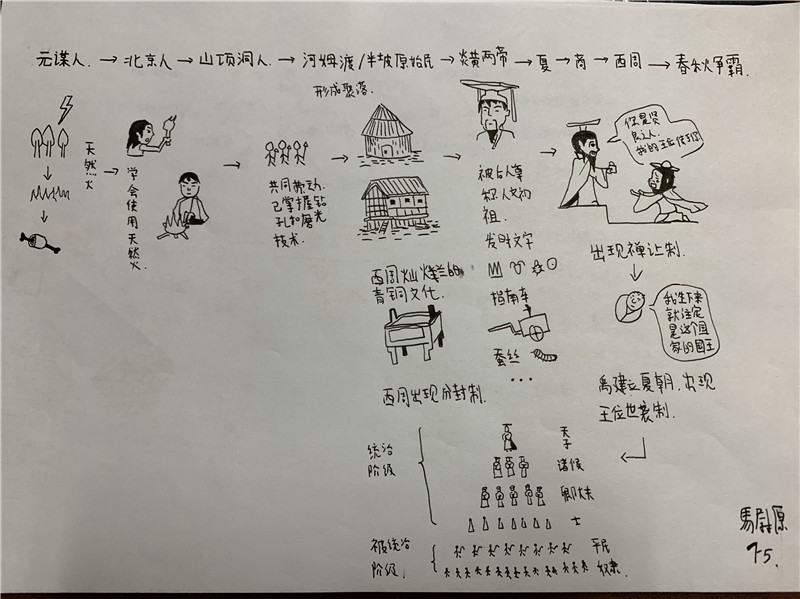 元谋人.→北京人→山顶洞人.→河姆渡/半坡原始居民→炎黄两帝→夏→商→西周→春秋争霸.
形成聚落.
天然火
学会使用天然火.
共同劳动.
已掌握钻
孔和磨光
技术.
被后人尊
称人文初
祖.
发明文字
指南车
蚕丝
...
你是贤
良之人.
我的王位传于你
出现禅让制.
我生下来
就注定
是这个国
家的国王
禹建立夏朝.出现
王位世袭制.
西周灿烂的
青铜文化.
西周出现分封制.
统治
阶级
天子
诸侯
卿大夫
士
被统治
阶级.
平民
奴隶.
馬尉原
75.